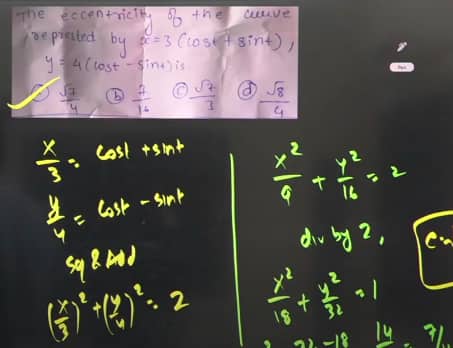 The eccentricity of the curve
represted by x = 3 (cost + sint),
y = 4 (cost - sint) is
√7/4 (b) 7/16 (c) √7/3 (d) √8/4
x/3 = cost + sint
y/4 = cost - sint
sq & Add
(x/3)² + (y/4)² = 2
x²/9 + y²/16 = 2
div by 2,
x²/18 + y²/32 = 1
32-18 14